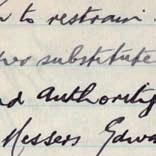 to restrain
her substitute
nd authority
Messers Edwa